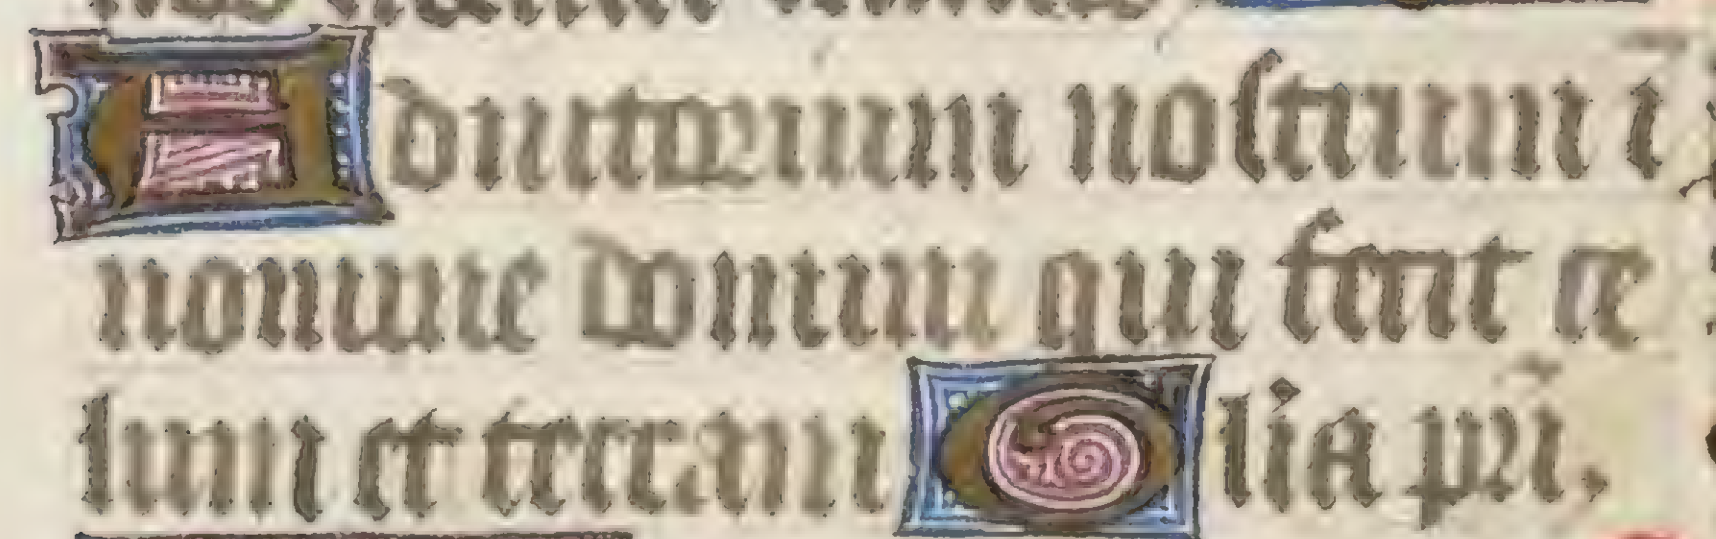 Adiutorium nostrum ī
nomine domini qui fecit ce
lum et terram Glia pr̄i.